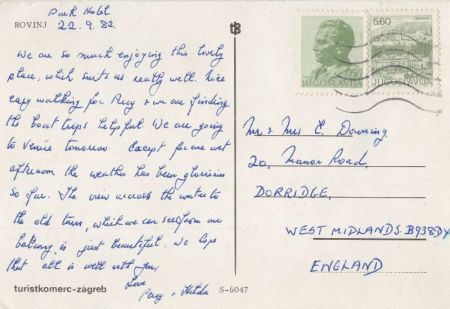 Park Hotel.
ROVINJ
22.9.82.
We are so much enjoying this lovely
place, which suits us really well. Nice
easy walking for Percy & we are finding
the boat trips helpful. We are going
to Venice tomorrow. Except for one wet
afternoon the weather has been glorious
so far. The view across the water to
the old town, which we can see from our
balcony, is just beautiful. We hope
that all is well with you,
Love
Percy & Hilda
turistkomerc-zagreb
S-6047
JUGOSLAVIJA
5.60
JUGOSLAVIJA
Mr & Mrs C. Downing
20, Manor Road,
DORRIDGE,
WEST MIDLANDS. B938DY
ENGLAND